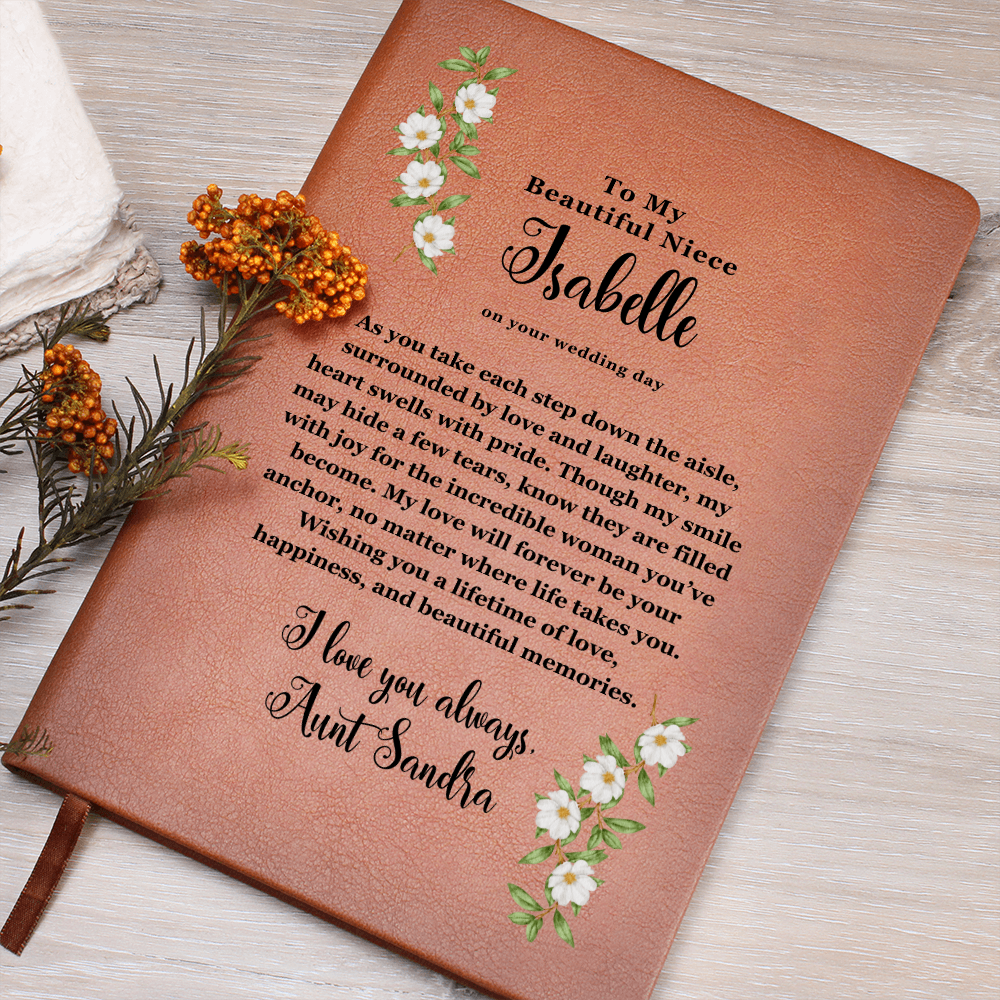 To My
Beautiful Niece
Isabelle
on your wedding day
As you take each step down the aisle,
surrounded by love and laughter, my
heart swells with pride. Though my smile
may hide a few tears, know they are filled
with joy for the incredible woman you've
become. My love will forever be your
anchor, no matter where life takes you.
Wishing you a lifetime of love,
happiness, and beautiful memories.
I love you always,
Aunt Sandra